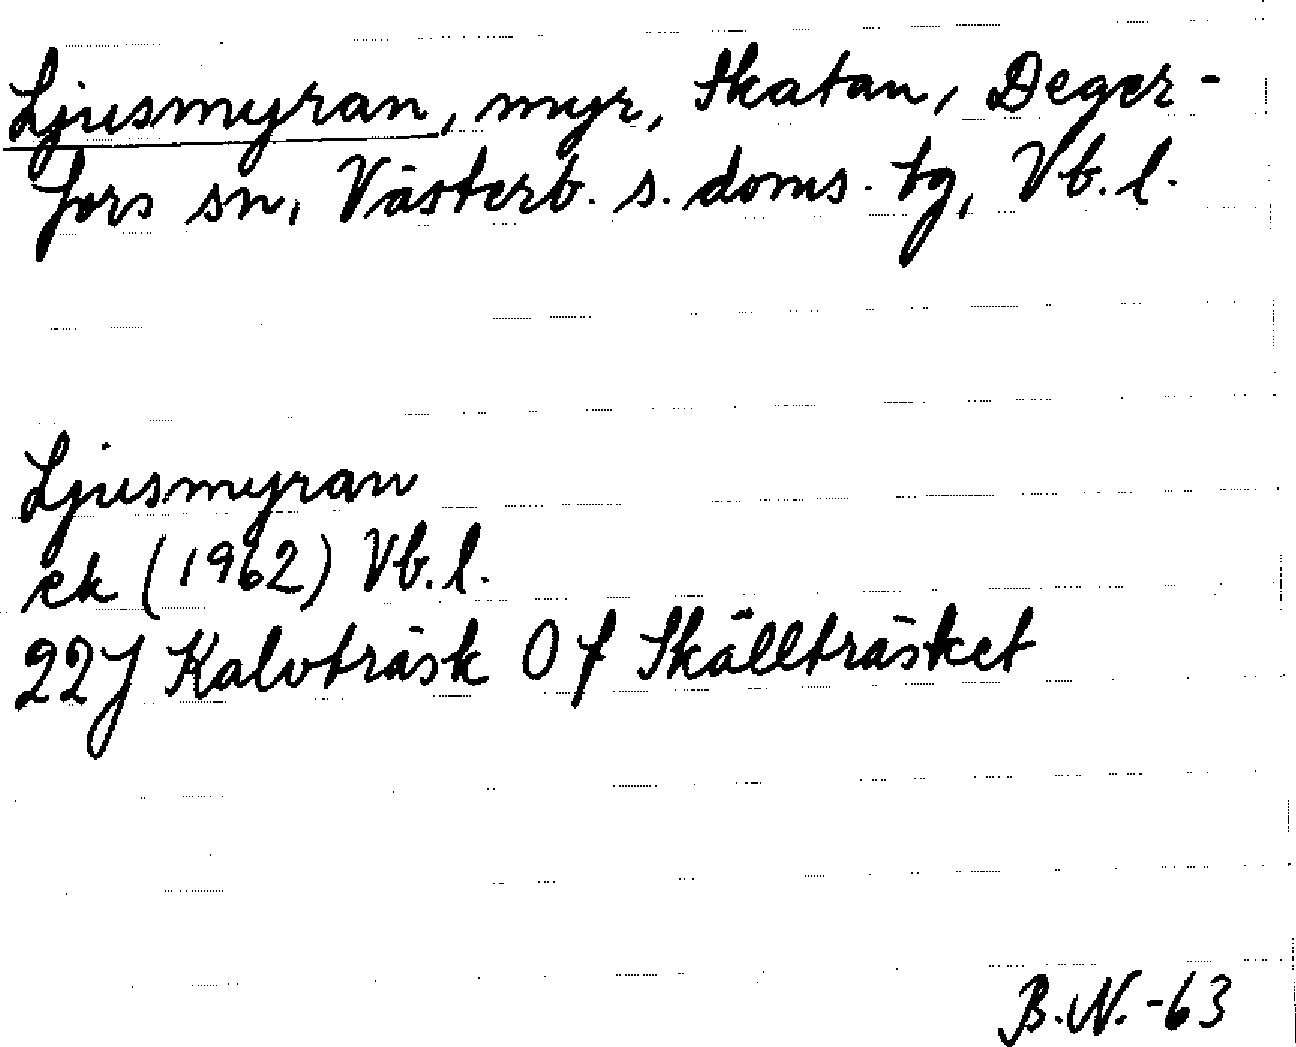 Ljusmyran, myr, Skatan, Deger-
fors sn, Västerb. s. doms. tg, Vb. l.
Ljusmyran
ek (1962) Vb. l.
22J Kalvträsk 0 f Skällträsket
B.N.-63